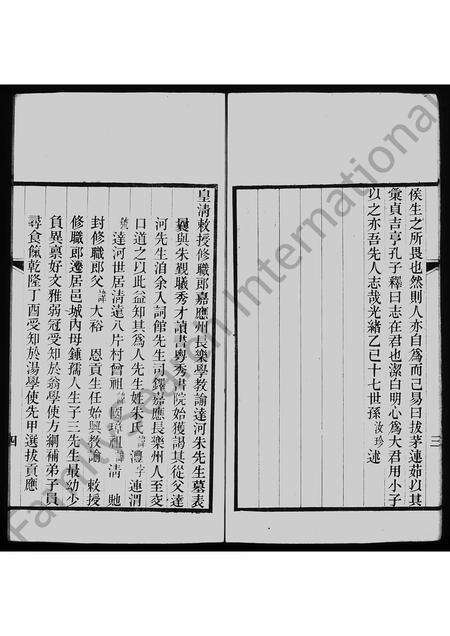 侯生之所畏也然則人亦自爲而己易曰拔茅連茹以其
彙貞吉亨孔子釋曰志在君也潔白明心爲大君用小子
以之亦吾先人志哉光緒乙巳十七世孫汝珍述
三
皇清敕授修職郎嘉應州長樂學教諭達河朱先生墓表
曩與朱觐曦秀才讀書粵秀書院始獲謁其從父達
河先生洎余入詞館先生司鐸嘉應長樂州人至交
口道之以此益知其爲人先生姓朱氏諱澧字連渭
號達河世居清遠八片村曾祖諱國璋祖諱清貤
封修職郎父諱大裕恩貢生任始興教諭敕授
修職郎遷居邑城內母鍾孺人生子三先生最幼少
負異稟好文雅弱冠受知於翁學使方綱補弟子員
尋食餼乾隆丁酉受知於湯學使先甲選拔貢應
四
FamilySearch International